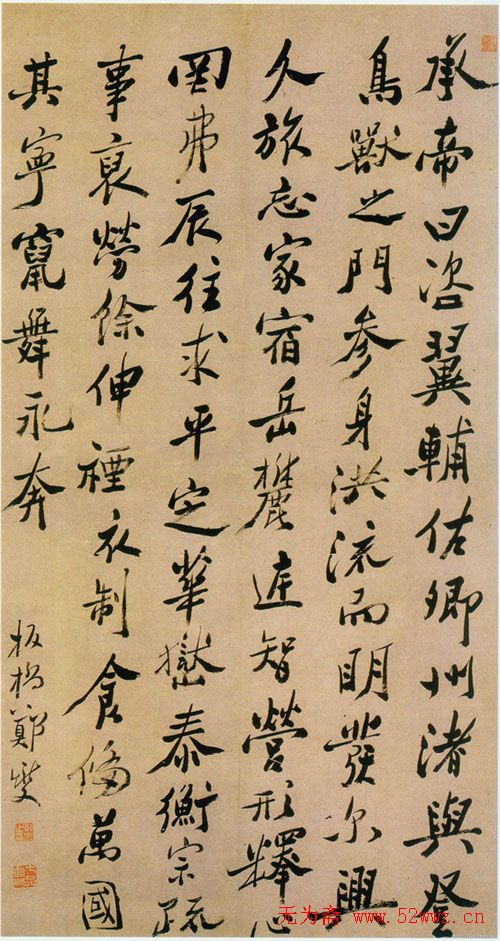 承帝曰咨翼輔佐卿州渚與登
鳥獸之門参身洪流而明發尔興
久旅忘家宿岳麓庭智營形釋心
罔弗辰往求平定華嶽泰衡宗疏
事裒勞餘伸禋衣制食俻萬國
其寧竄舞永奔
板橋鄭燮
无为斋 www.52wwz.cn